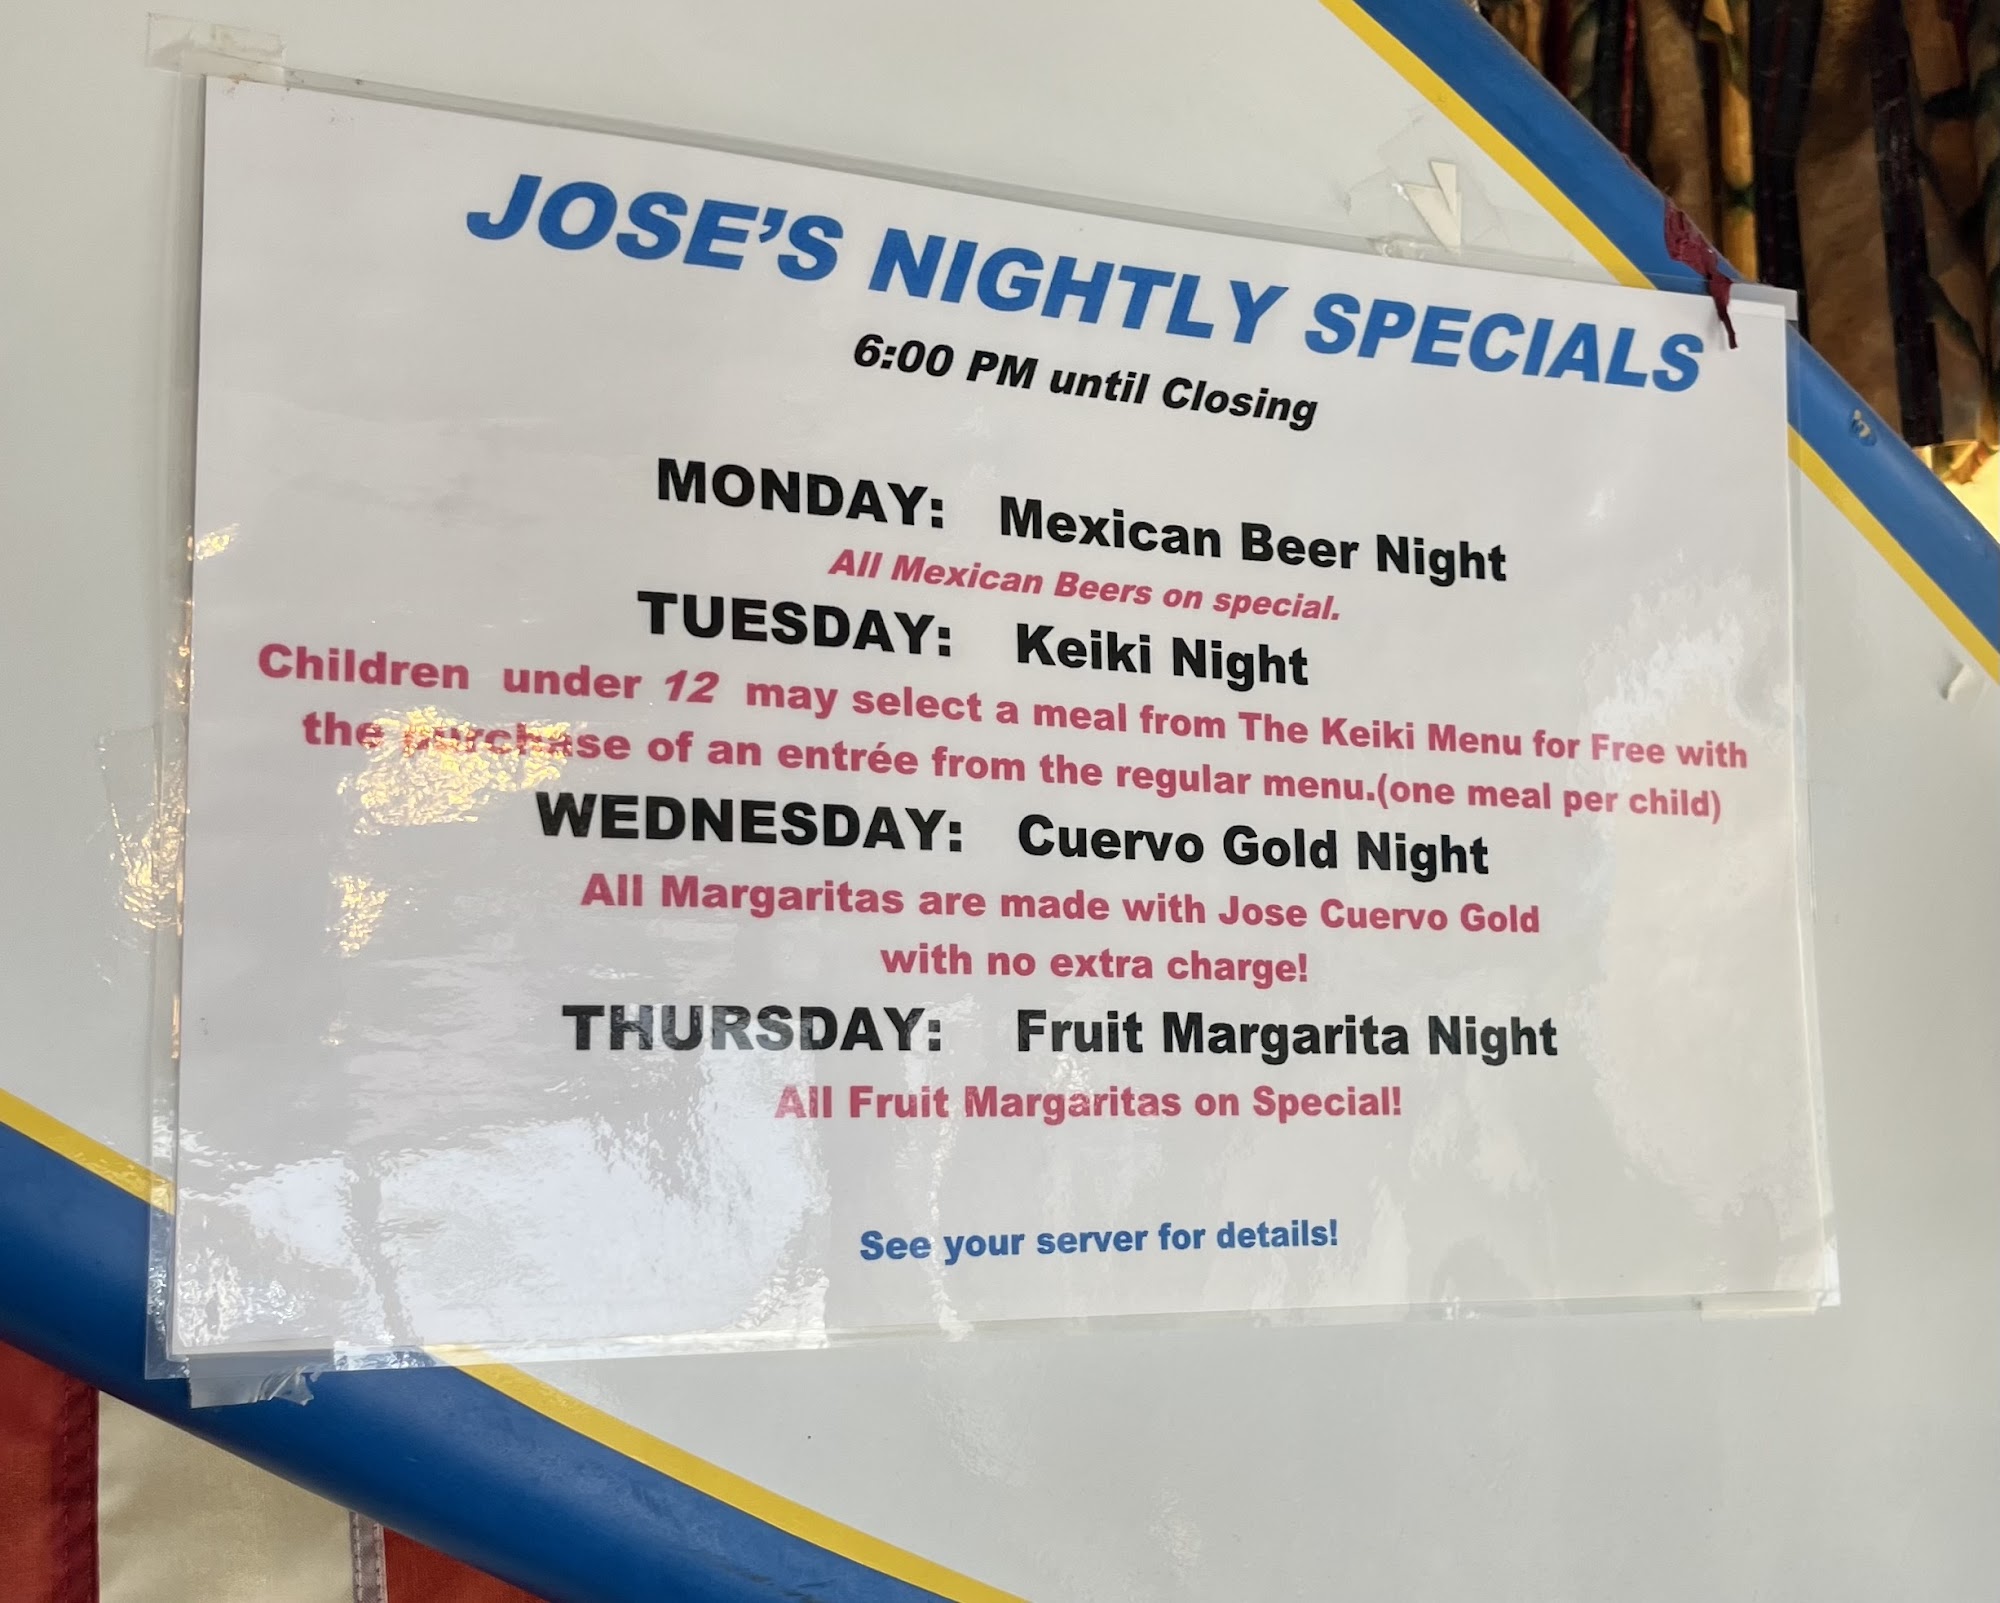 JOSE'S NIGHTLY SPECIALS
6:00 PM until Closing
MONDAY: Mexican Beer Night
All Mexican Beers on special.
TUESDAY: Keiki Night
Children under 12 may select a meal from The Keiki Menu for Free with
the purchase of an entrée from the regular menu.(one meal per child)
WEDNESDAY: Cuervo Gold Night
All Margaritas are made with Jose Cuervo Gold
with no extra charge!
THURSDAY: Fruit Margarita Night
All Fruit Margaritas on Special!
See your server for details!